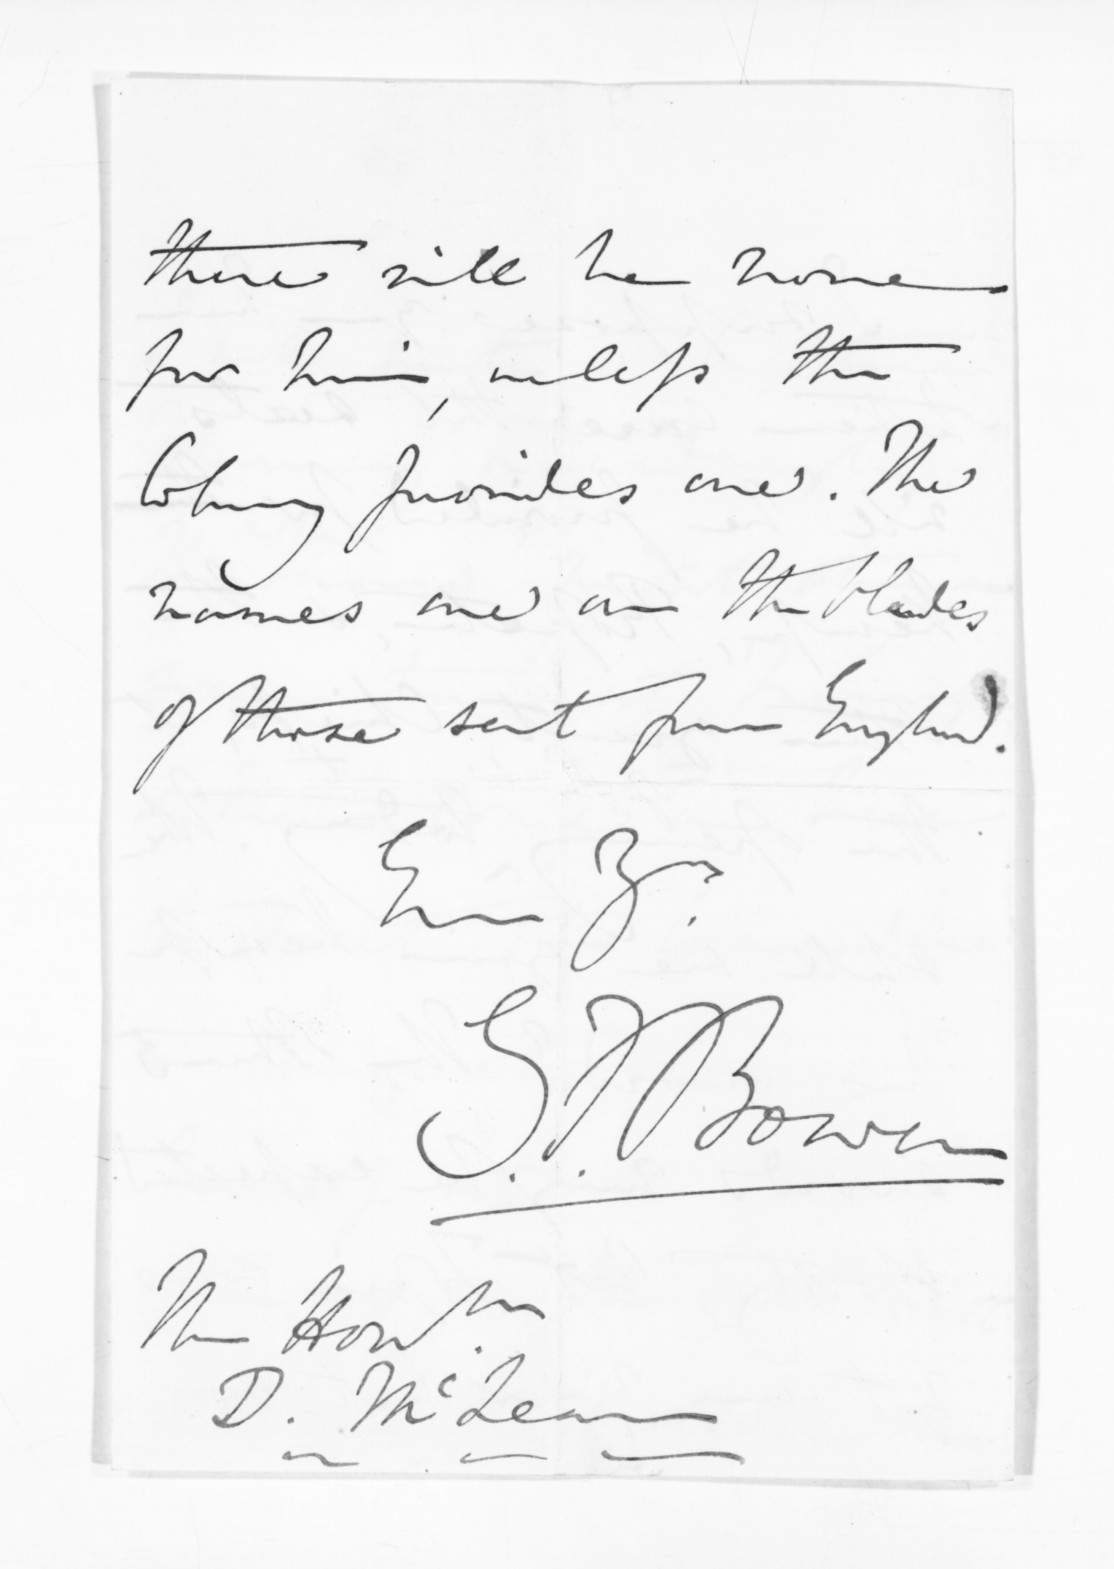 there will be none
for him, unless the
Colony provides one. The
names are on the blades
of those sent from England.
Ever Yrs.
G. F. Bowen
The Honble.
D. McLean